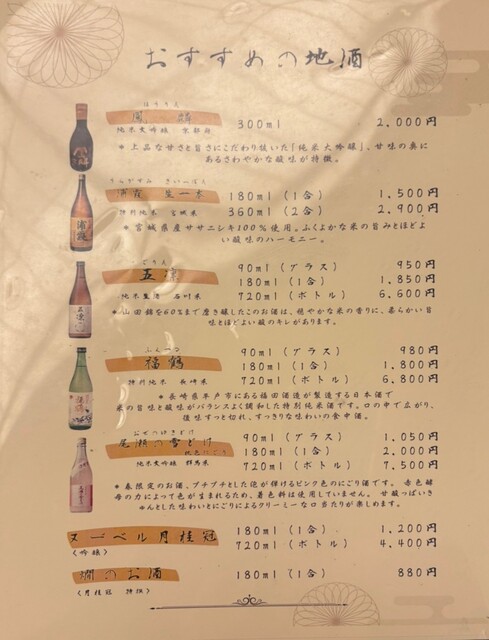 おすすめの地酒
ほうりん
鳳麟 300ml 2,000円
純米大吟醸 京都府
＊上品な甘さと旨さにこだわり抜いた「純米大吟醸」、甘味の奥に
あるさわやかな酸味が特徴。
うらがすみ きいっぽん
浦霞 生一本 180ml（1合） 1,500円
特別純米 宮城県 360ml（2合） 2,900円
＊宮城県産ササニシキ100％使用。ふくよかな米の旨みとほどよ
い酸味のハーモニー。
ごりん
五凛 90ml（グラス） 950円
180ml（1合） 1,850円
純米生酒 石川県 720ml（ボトル） 6,600円
＊山田錦を60%まで磨き醸したこのお酒は、穏やかな米の香りに、柔らかい旨
味とほどよい酸のキレがあります。
ふくつる
福鶴 90ml（グラス） 980円
180ml（1合） 1,800円
特別純米 長崎県 720ml（ボトル） 6,800円
＊長崎県平戸市にある福田酒造が製造する日本酒で
米の旨味と酸味がバランスよく調和した特別純米酒です。口の中で広がり、
後味すっと切れ、すっきりな味わいの食中酒。
おぜのゆきどけ
尾瀬の雪どけ 90ml（グラス） 1,050円
桃色にごり 180ml（1合） 2,000円
純米大吟醸 群馬県 720ml（ボトル） 7,500円
＊春限定のお酒、プチプチとした泡が弾けるピンク色のにごり酒です。赤色酵
母の力によって色が生まれるため、着色料は使用していません。甘酸っぱいき
ゅんとした味わいとにごりによるクリーミーな口当たりが楽しめます。
ヌーベル月桂冠 180ml（1合） 1,200円
（吟醸） 720ml（ボトル） 4,400円
燗のお酒 180ml（1合） 880円
（月桂冠 特撰）